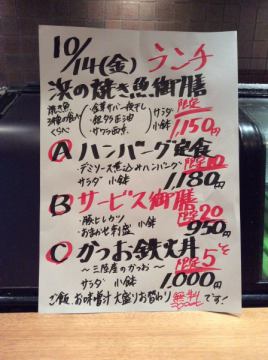 10/14(金) ランチ
浜の焼き魚御膳
焼き魚 食べくらべ
・金華サバ一夜干し
・銀ダラ醤油
・サワラ西京
サラダ 小鉢
限定
1,150円
Ⓐ ハンバーグ定食
・デミソース煮込みハンバーグ 限定10
サラダ 小鉢 1,180円
Ⓑ サービス御膳
・豚ヒレカツ 小鉢 限定20
・おまかせ刺盛 950円
Ⓒ かつお鉄火丼
～三陸産のかつお～ 限定5
サラダ 小鉢 1,000円
ご飯、お味噌汁 大盛りお替わり 無料です!